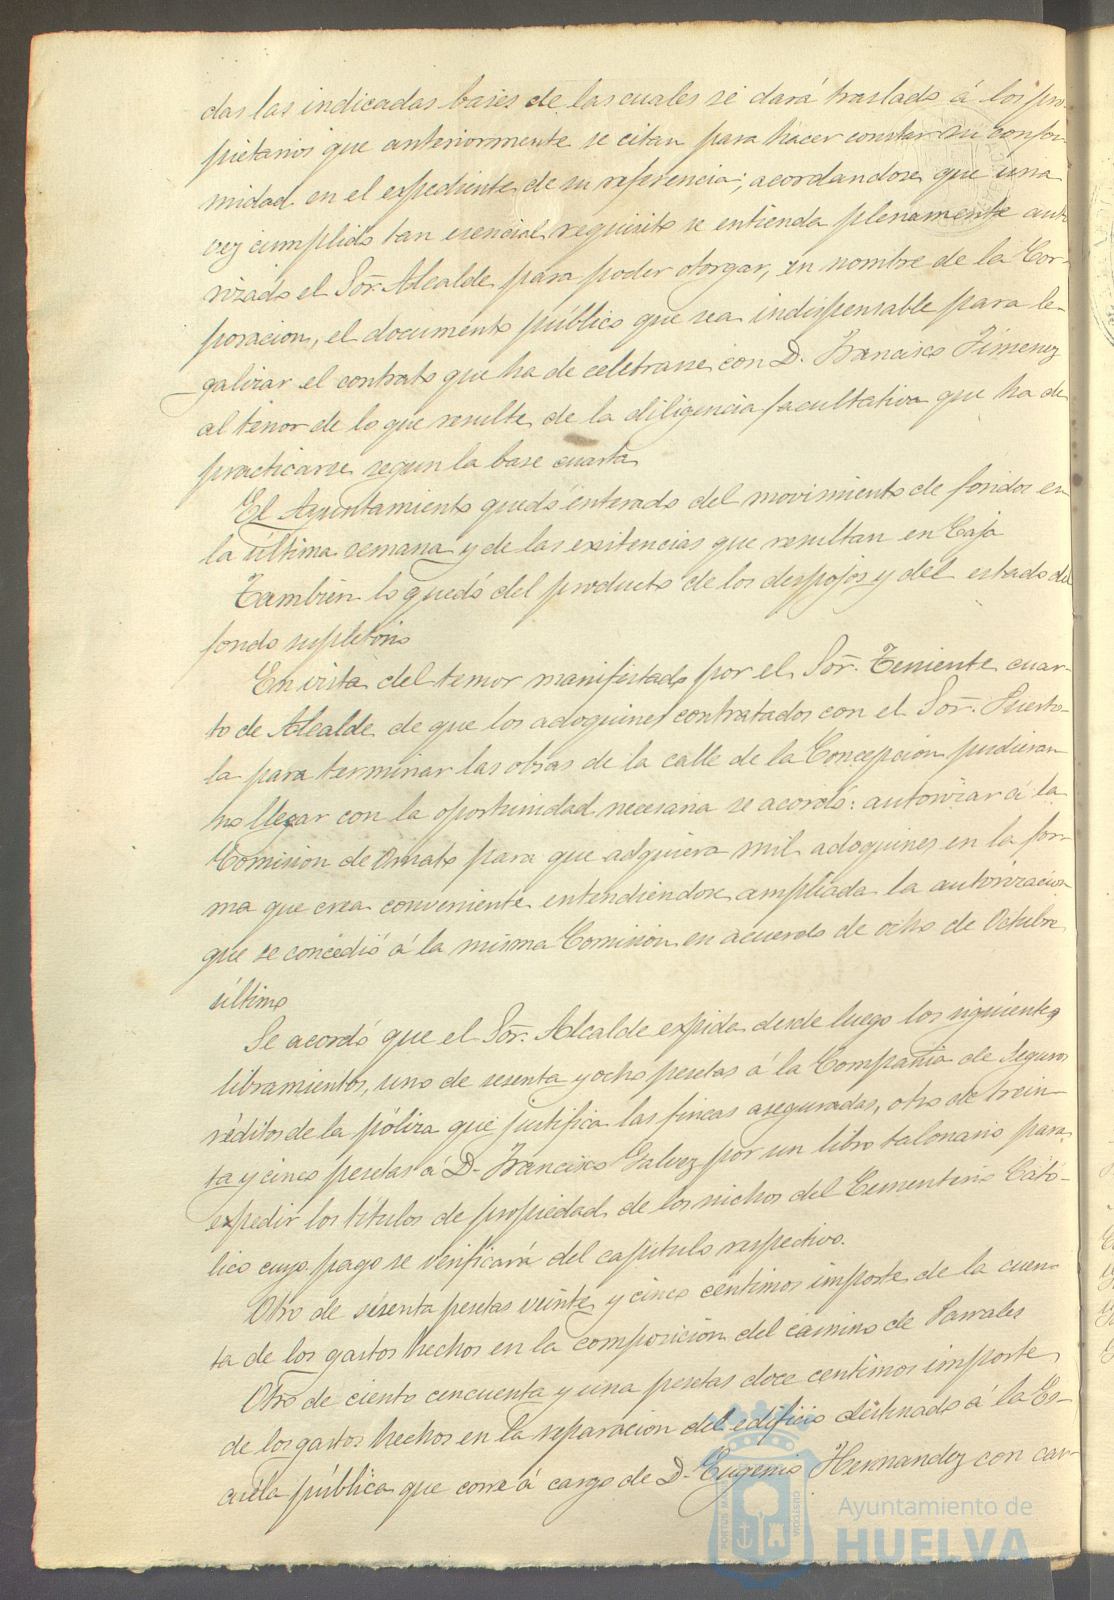 das las indicadas bases de las cuales se dará traslado á los pro-
pietarios que anteriormente se citan para hacer constar su confor-
midad en el expediente de su referencia; acordandose que una
vez cumplido tan esencial requisito se entienda plenamente auto-
rizado el Sor. Alcalde para poder otorgar, en nombre de la Cor-
poracion, el documento público que sea indispensable para le-
galizar el contrato que ha de celebrarse con D. Francisco Jimenez
al tenor de lo que resulte de la diligencia facultativa que ha de
practicarse segun la base cuarta
El Ayuntamiento quedó enterado del movimiento de fondos en
la última semana y de las existencias que resultan en Caja
Tambien lo quedó del producto de los despojos y del estado del
fondo supletorio
En vista del temor manifestado por el Sor. Teniente cuar-
to de Alcalde de que los adoquines contratados con el Sor. Puerto-
la para terminar las obras de la calle de la Concepcion pudieran
no llegar con la oportunidad necesaria se acordó: autorizar á la
Comision de Ornato para que adquiera mil adoquines en la for-
ma que crea conveniente entendiendose ampliada la autorizacion
que se concedió á la misma Comision en acuerdo de ocho de Octubre
último
Se acordó que el Sor. Alcalde expida desde luego los siguientes
libramientos, uno de sesenta y ocho pesetas á la Compañia de Seguros
réditos de la póliza que justifica las fincas aseguradas, otro de trein-
ta y cinco pesetas á D. Francisco Galvez por un libro talonario para
expedir los títulos de propiedad de los nichos del Cementerio Cató-
lico cuyo pago se verificará del capitulo respectivo.
Otro de sesenta pesetas veinte y cinco centimos importe de la cuen-
ta de los gastos hechos en la composicion del camino de Parrales
Otro de ciento cincuenta y una pesetas doce centimos importe
de los gastos hechos en la reparacion del edificio destinado á la Es-
cuela pública que corre á cargo de D. Eugenio Hernandez con car-
Ayuntamiento de
HUELVA